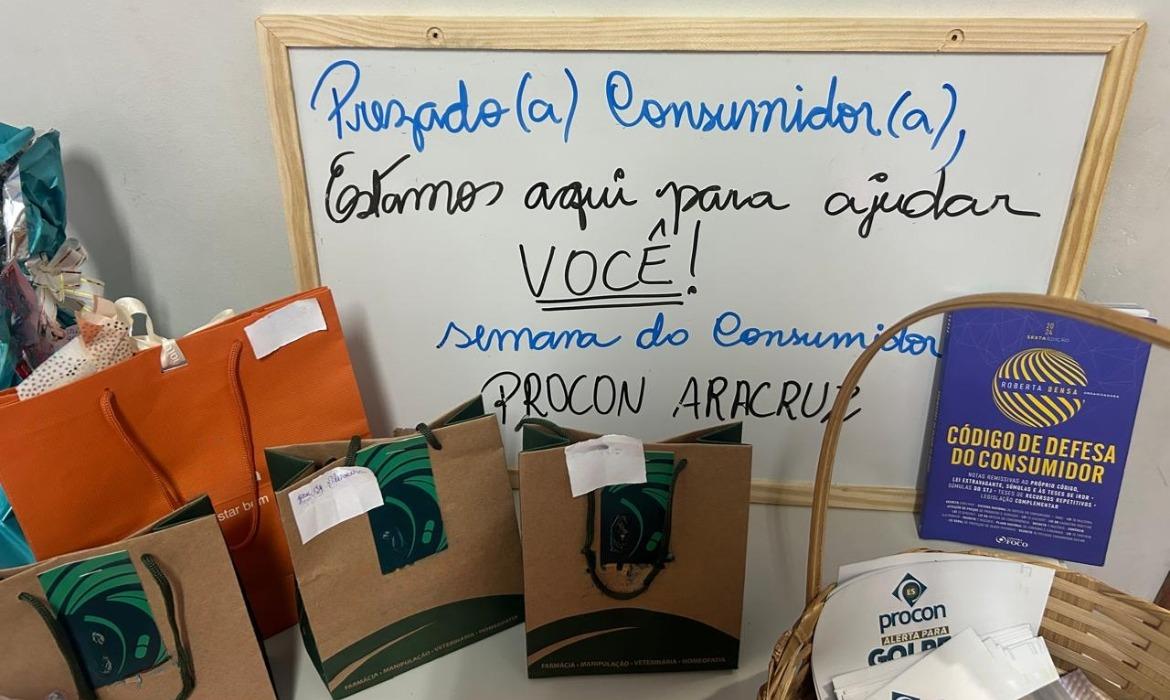 Prezado(a) Consumidor(a),
Estamos aqui para ajudar
VOCÊ!
semana do Consumidor
PROCON ARACRUZ
star bem
FARMÁCIA • MANIPULAÇÃO • VETERINÁRIA • HOMEOPATIA
FARMÁCIA • MANIPULAÇÃO • VETERINÁRIA • HOMEOPATIA
20
24
SEXTA EDIÇÃO
ROBERTA DENSA
ORGANIZADORA
CÓDIGO DE DEFESA
DO CONSUMIDOR
NOTAS REMISSIVAS AO PRÓPRIO CÓDIGO,
LEI EXTRAVAGANTE, SÚMULAS E ÀS TESES DE IRDR •
SÚMULAS DO STJ • TESES DE RECURSOS REPETITIVOS •
LEGISLAÇÃO COMPLEMENTAR
EDITORA
FOCO
ES
procon
ALERTA PARA
GOLPE